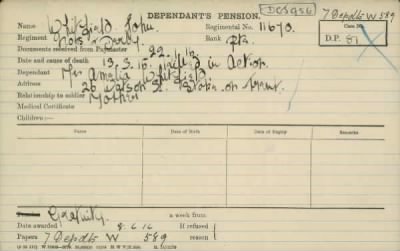 DEPENDANT'S PENSION. DCS956 7 Depdts W 589
Name Whitfield John. Regimental No. 11670. Case No.
Regiment Notts & Derby. Rank Pte. D.P. 81
Documents received from Paymaster
Date and cause of death 13.3.15. Killed in Action.
Dependant Mrs Amelia Whitfield.
Address 26 Watson St. Stoke on Trent.
Relationship to soldier Mother
Medical Certificate
Children:—
Name Date of Birth. Date of Expiry. Remarks
Gratuity. a week from
Date awarded 8.6.16 If refused
Papers 7 Depdts W 589